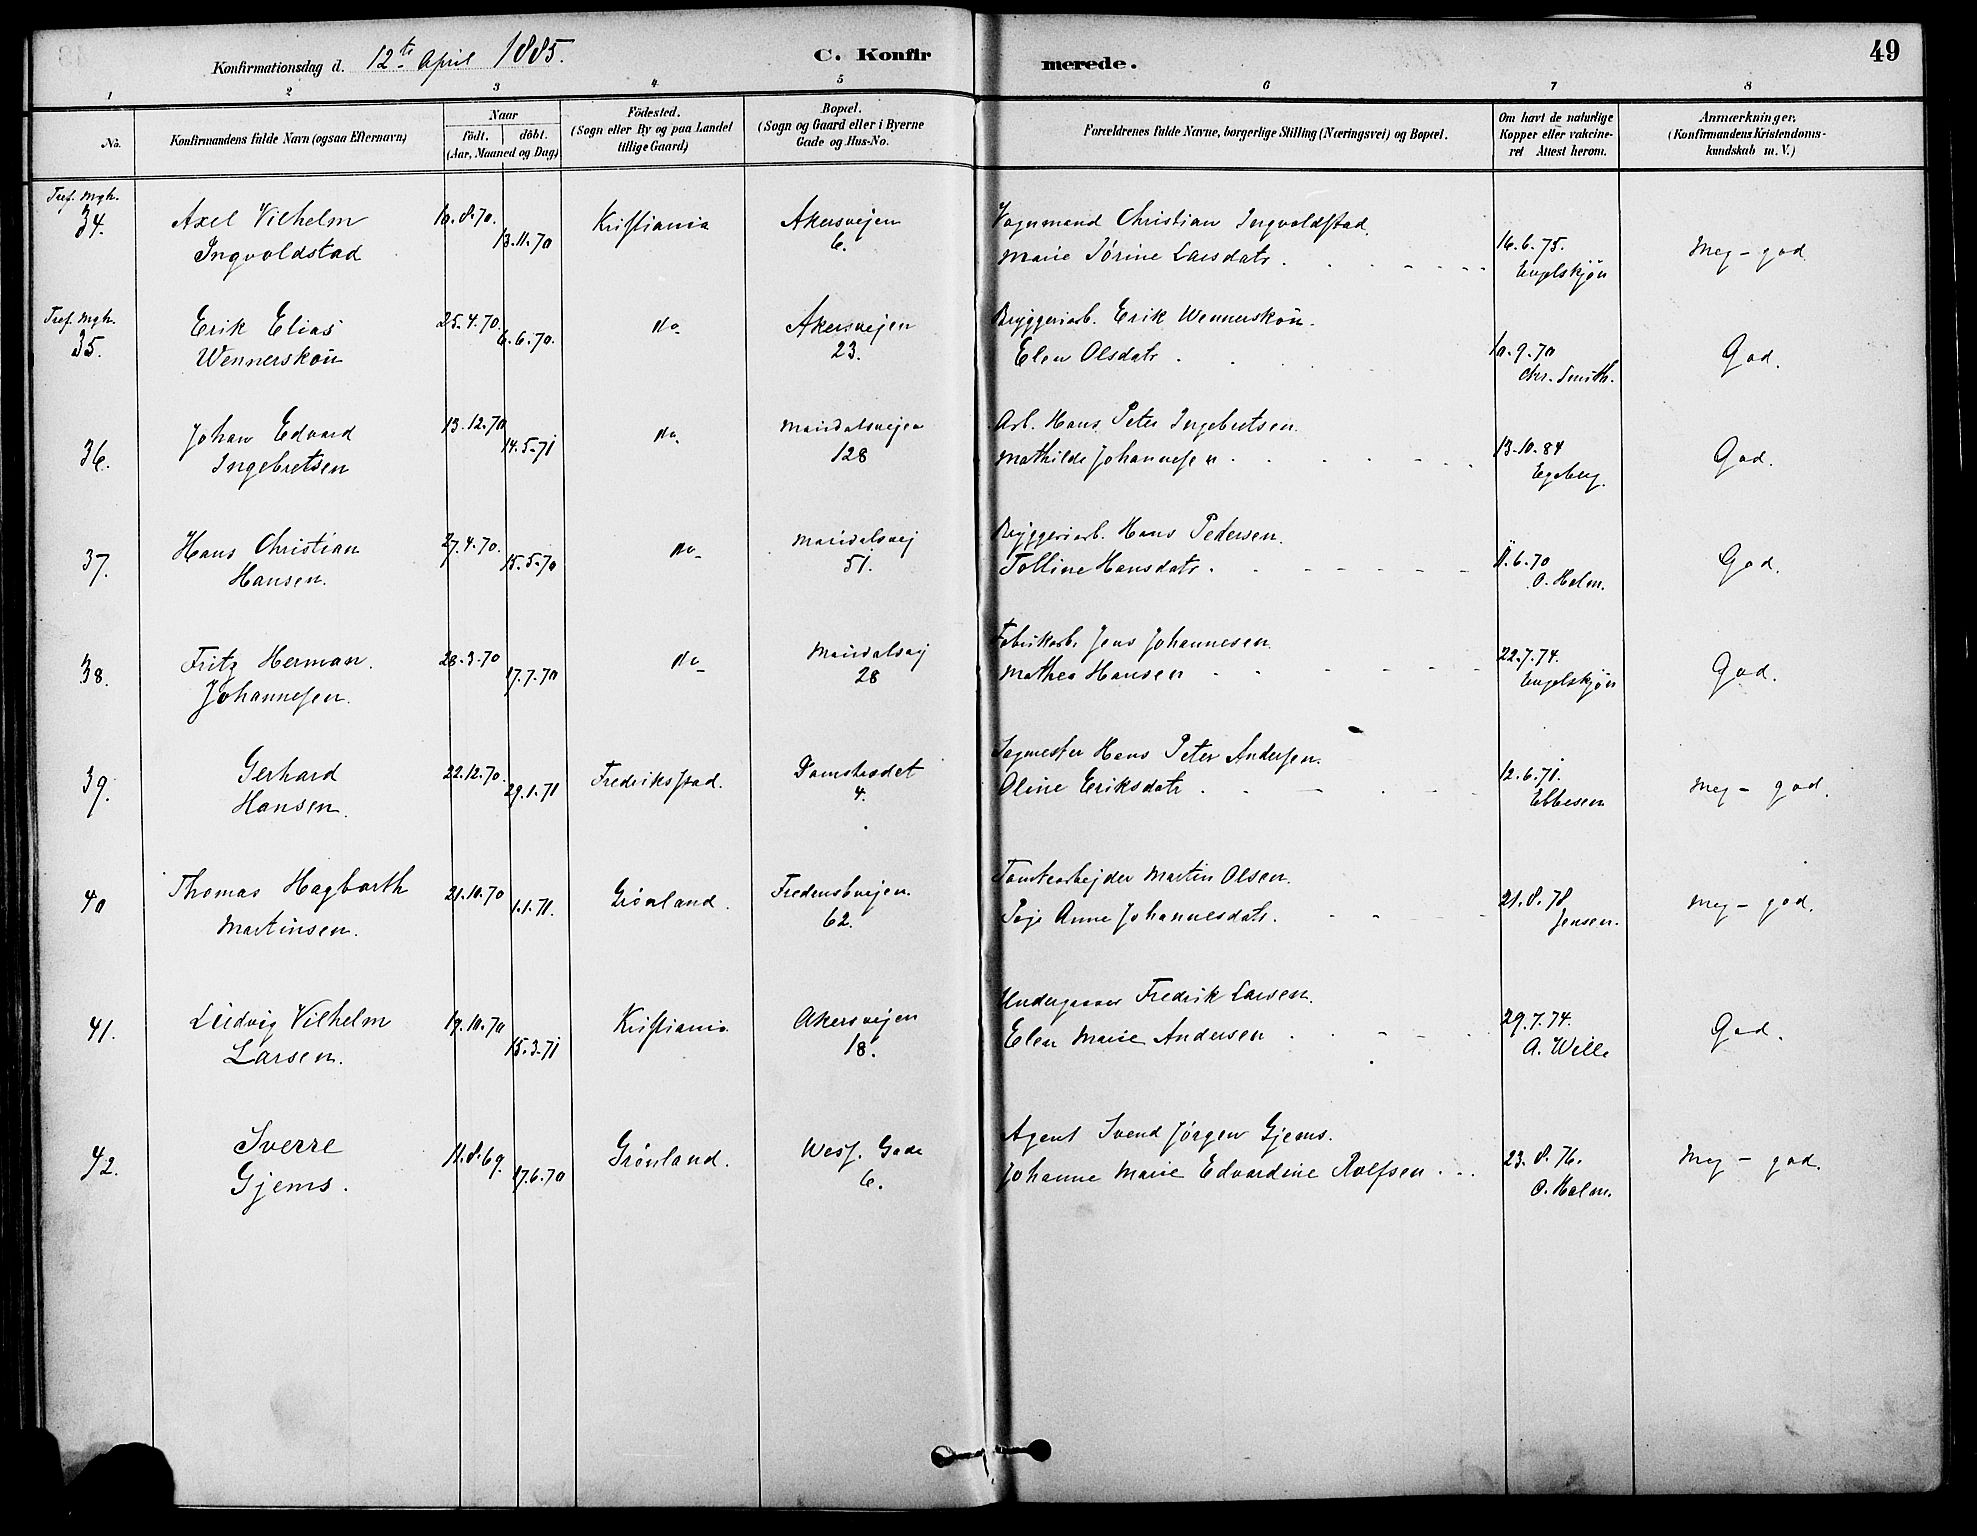 Konfirmationsdag d. 12te April 1885.
C. Konfirmerede.
49
1 2 3 4 5 6 7 8
No.
Konfirmandens fulde Navn (ogsaa Efternavn)
Naar
födt. döbt.
(Aar, Maaned og Dag)
Födested.
(Sogn eller By og paa Landet
tillige Gaard)
Bopæl.
(Sogn og Gaard eller i Byerne
Gade og Hus-No.
Forældrenes fulde Navne, borgerlige Stilling (Næringsvei) og Bopæl.
Om havt de naturlige
Kopper eller vakcine-
ret Attest herom.
Anmærkninger,
(Konfirmandens Kristendoms-
kundskab m. V.)
Tref. Mgh.
34. Axel Vilhelm 10.8.70. Kristiania Akersvejen Vognmand Christian Ingvoldstad 16.6.75. Meg - god
Ingvoldstad 13.11.70 6. Marie Sørine Larsdatr. Engelskjøn
Tref. Mgh.
35. Erik Elias 25.4.70. do Akersvejen Bryggeriarb. Erik Wennerskön. 10.9.70 God.
Wennerskön 6.6.70. 23. Elen Olsdatr Chr. Smith.
36. Johan Edvard 13.12.70 do Maridalsvejen Arb. Hans Peter Ingebretsen. 13.10.84 God.
Ingebretsen 14.5.71 128 Mathilde Johannesen Egeberg.
37. Hans Christian 27.4.70. do Maridalsvej Bryggeriarb. Hans Pedersen. 8.6.70 God.
Hansen. 15.5.70 51. Tolline Hansdatr. O. Holm.
38. Fritz Herman. 28.3.70 do Maridalsvej Fabrikarb. Jens Johannesen 22.7.74. God.
Johannesen. 17.7.70 28 Mathea Hansen Engelskjøn
39. Gerhard 22.12.70. Fredriksstad. Damstrædet Sagmester Hans Peter Andersen. 12.6.71. Meg - god.
Hansen. 29.1.71 4. Oline Eriksdatr Ebbesen
40 Thomas Hagbarth 21.10.70 Grönland. Fredensbvejen. Tomtearbejder Martin Olsen. 21.8.78 Meg - god.
Martinsen. 1.1.71. 62. Anne Johannesdatr. Jensen.
41. Ludvig Vilhelm 19.10.70 Kristiania Akersvejen Fredrik Larsen. 29.7.74. God.
Larsen. 15.3.71 18. Elen Marie Andersen A. Wille
42. Sverre 11.8.69. Grönland. Wess. Gade Agent Svend Jørgen Gjems. 23.8.76. Meg - god.
Gjems. 17.6.70 6. Johanne Marie Edvardine Rolfsen O. Holm.